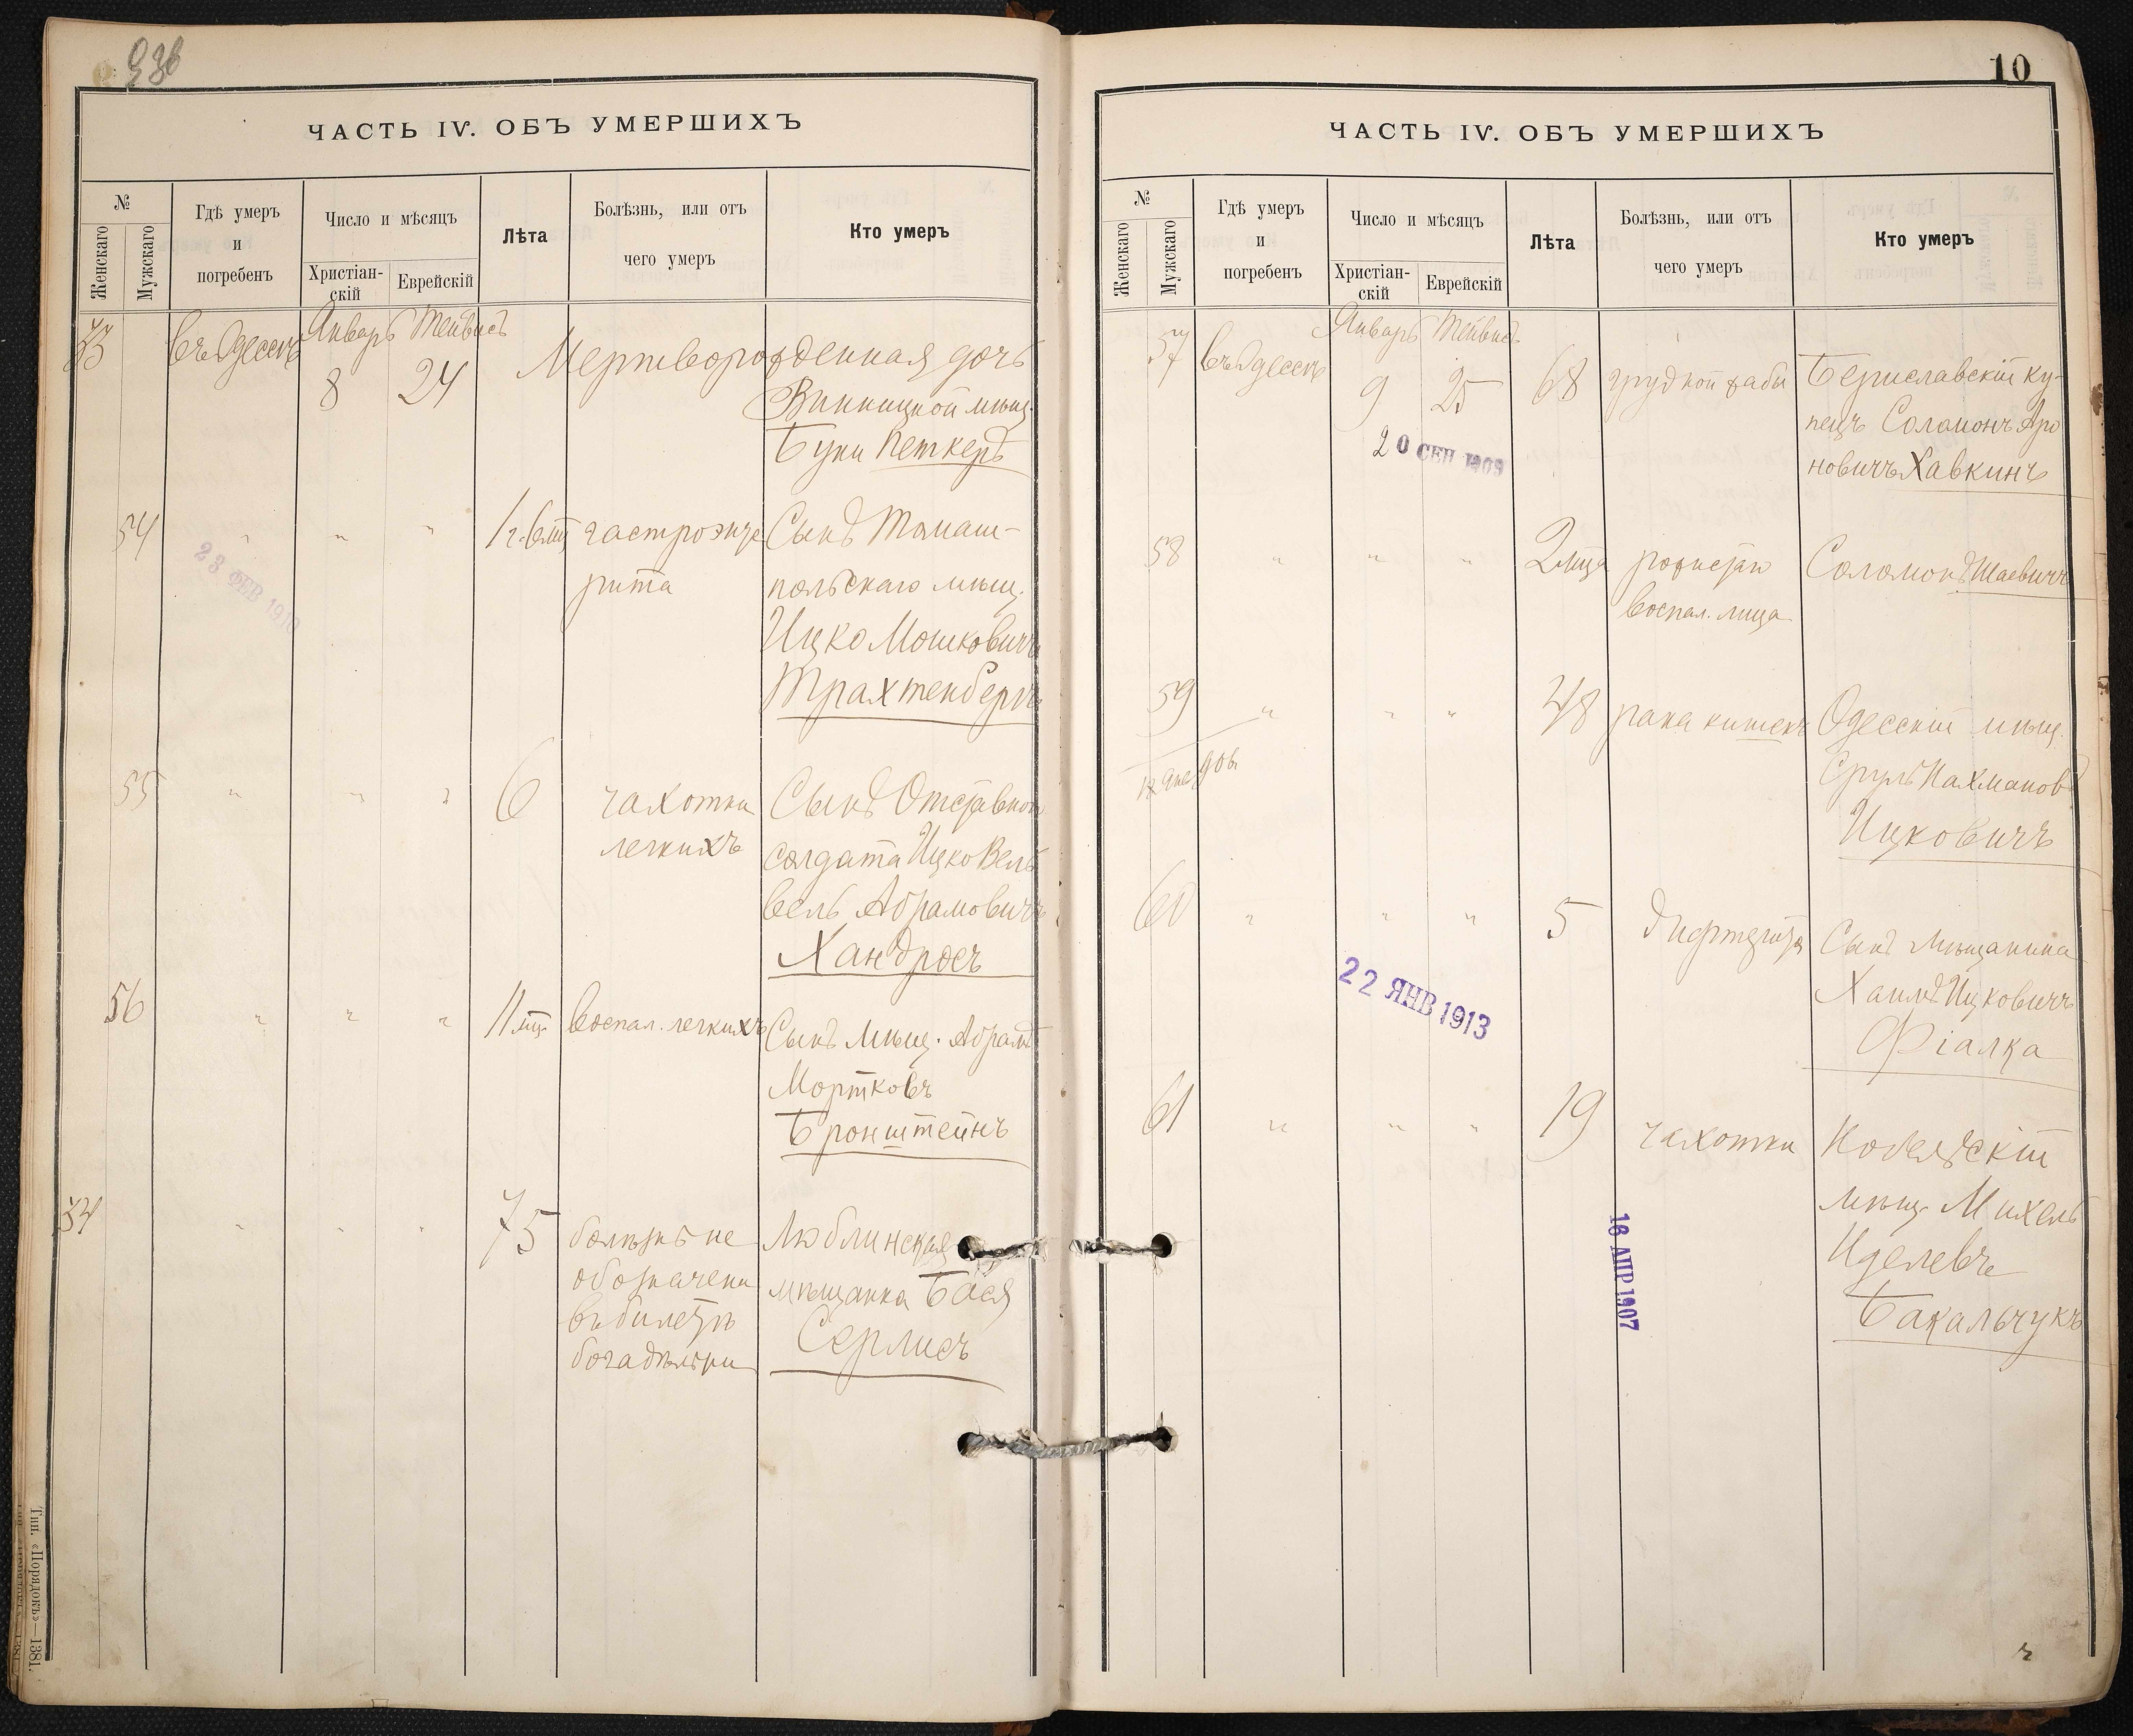 ЧАСТЬ IV. ОБЪ УМЕРШИХЪ
№
Женскаго
Мужскаго
Гдѣ умеръ
и
погребенъ
Число и мѣсяцъ
Христіан-
скій
Еврейскій
Лѣта
Болѣзнь, или отъ
чего умеръ
Кто умеръ
въ Одессѣ
Январь Тейвисъ
8 24
Мертворожденная дочь
Винницкой мѣщ.
Петкеръ
54 " " " 1 г. 6 мц гастроэнте
рита
Сынъ Томаш-
польскаго мѣщ.
Ицко Мошковичъ
Трахтенбергъ
23 ФЕВ 1910
55 " " " 6 чахотки
легкихъ
Сынъ Отставного
солдата Ицко Вель
вель Абрамовичъ
Хандросъ
56 " " " 11 мц. воспал. легкихъ
Сынъ мѣщ. Абрамъ
Мортковъ
Бронштейнъ
34 " " " 75
болѣзнь не
обозначена
въ билетѣ
богадѣльни
Люблинская
мѣщанка Бася
Серлисъ
Тип. «Порядокъ»—1381.
10
ЧАСТЬ IV. ОБЪ УМЕРШИХЪ
№
Женскаго
Мужскаго
Гдѣ умеръ
и
погребенъ
Число и мѣсяцъ
Христіан-
скій
Еврейскій
Лѣта
Болѣзнь, или отъ
чего умеръ
Кто умеръ
Январь Тейвисъ
57 въ Одессѣ 9 25 68 грудной жабы
Бериславскій ку-
пецъ Соломонъ Аро
новичъ Хавкинъ
20 СЕН 1909
58 " " " 2 мца рожистаго
воспал. лица
Соломонъ Шаевичъ
59 " " " 48 рака кишекъ
Одесскій мѣщ.
Сруль Нахмановъ
Ицковичъ
60 " " " 5 дифтерита
Сынъ мѣщанина
Хаимъ Ицковичъ
Фіалка
22 ЯНВ 1913
61 " " " 19 чахотки
мѣщ. Михель
Иделевъ
Бакальчукъ
18 АПР 1907